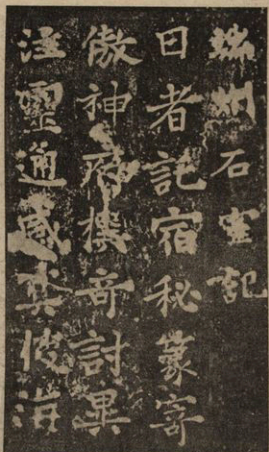 端州石室記
日者託宿秘篆寄
傲神府探奇討異
靈通感彼海